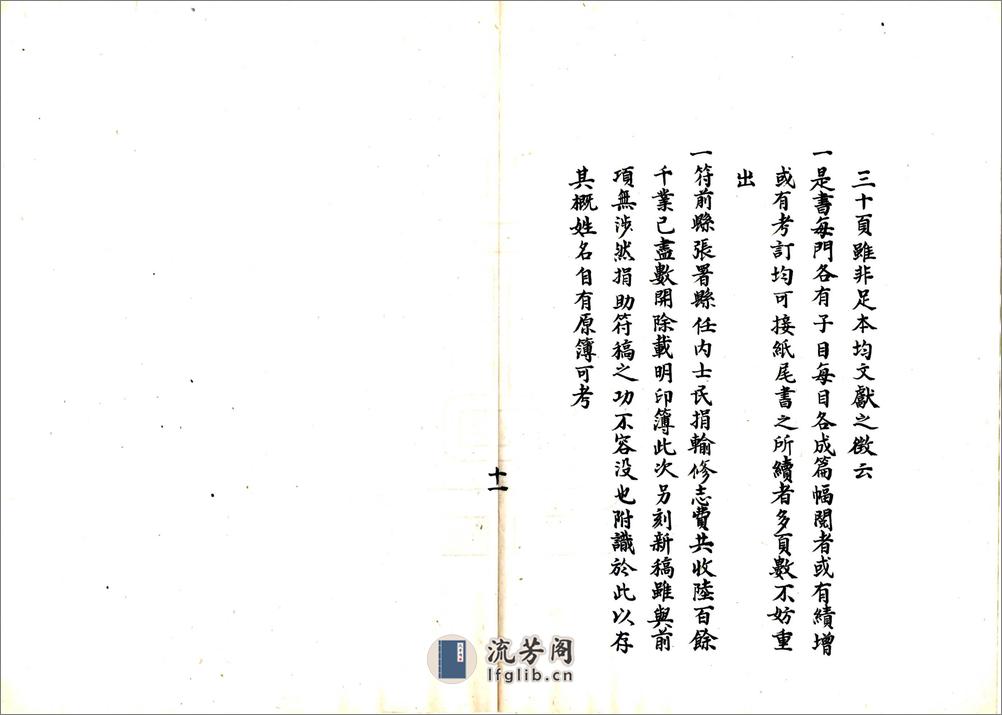 三十頁雖非足本均文獻之徵云
一是書每門各有子目每目各成篇幅閱者或有續增
或有考訂均可接紙尾書之所續者多頁數不妨重
出
一符前縣張署縣任內士民捐輸修志費共收陸百餘
千業已盡數開除載明印簿此次另刻新稿雖與前
項無涉然捐助符稿之功不容没也附識於此以存
其概姓名自有原簿可考
十一
流芳阁
lfglib.cn